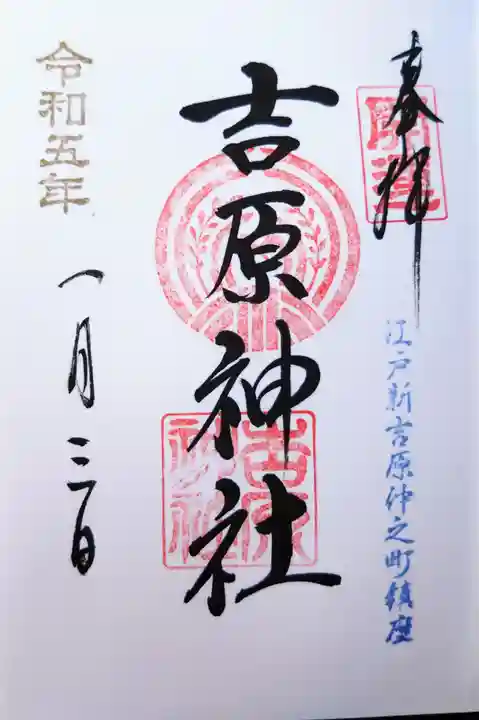 奉拝
開運
江戸新吉原仲之町鎮座
吉原神社
吉原神社
令和五年
一月三日